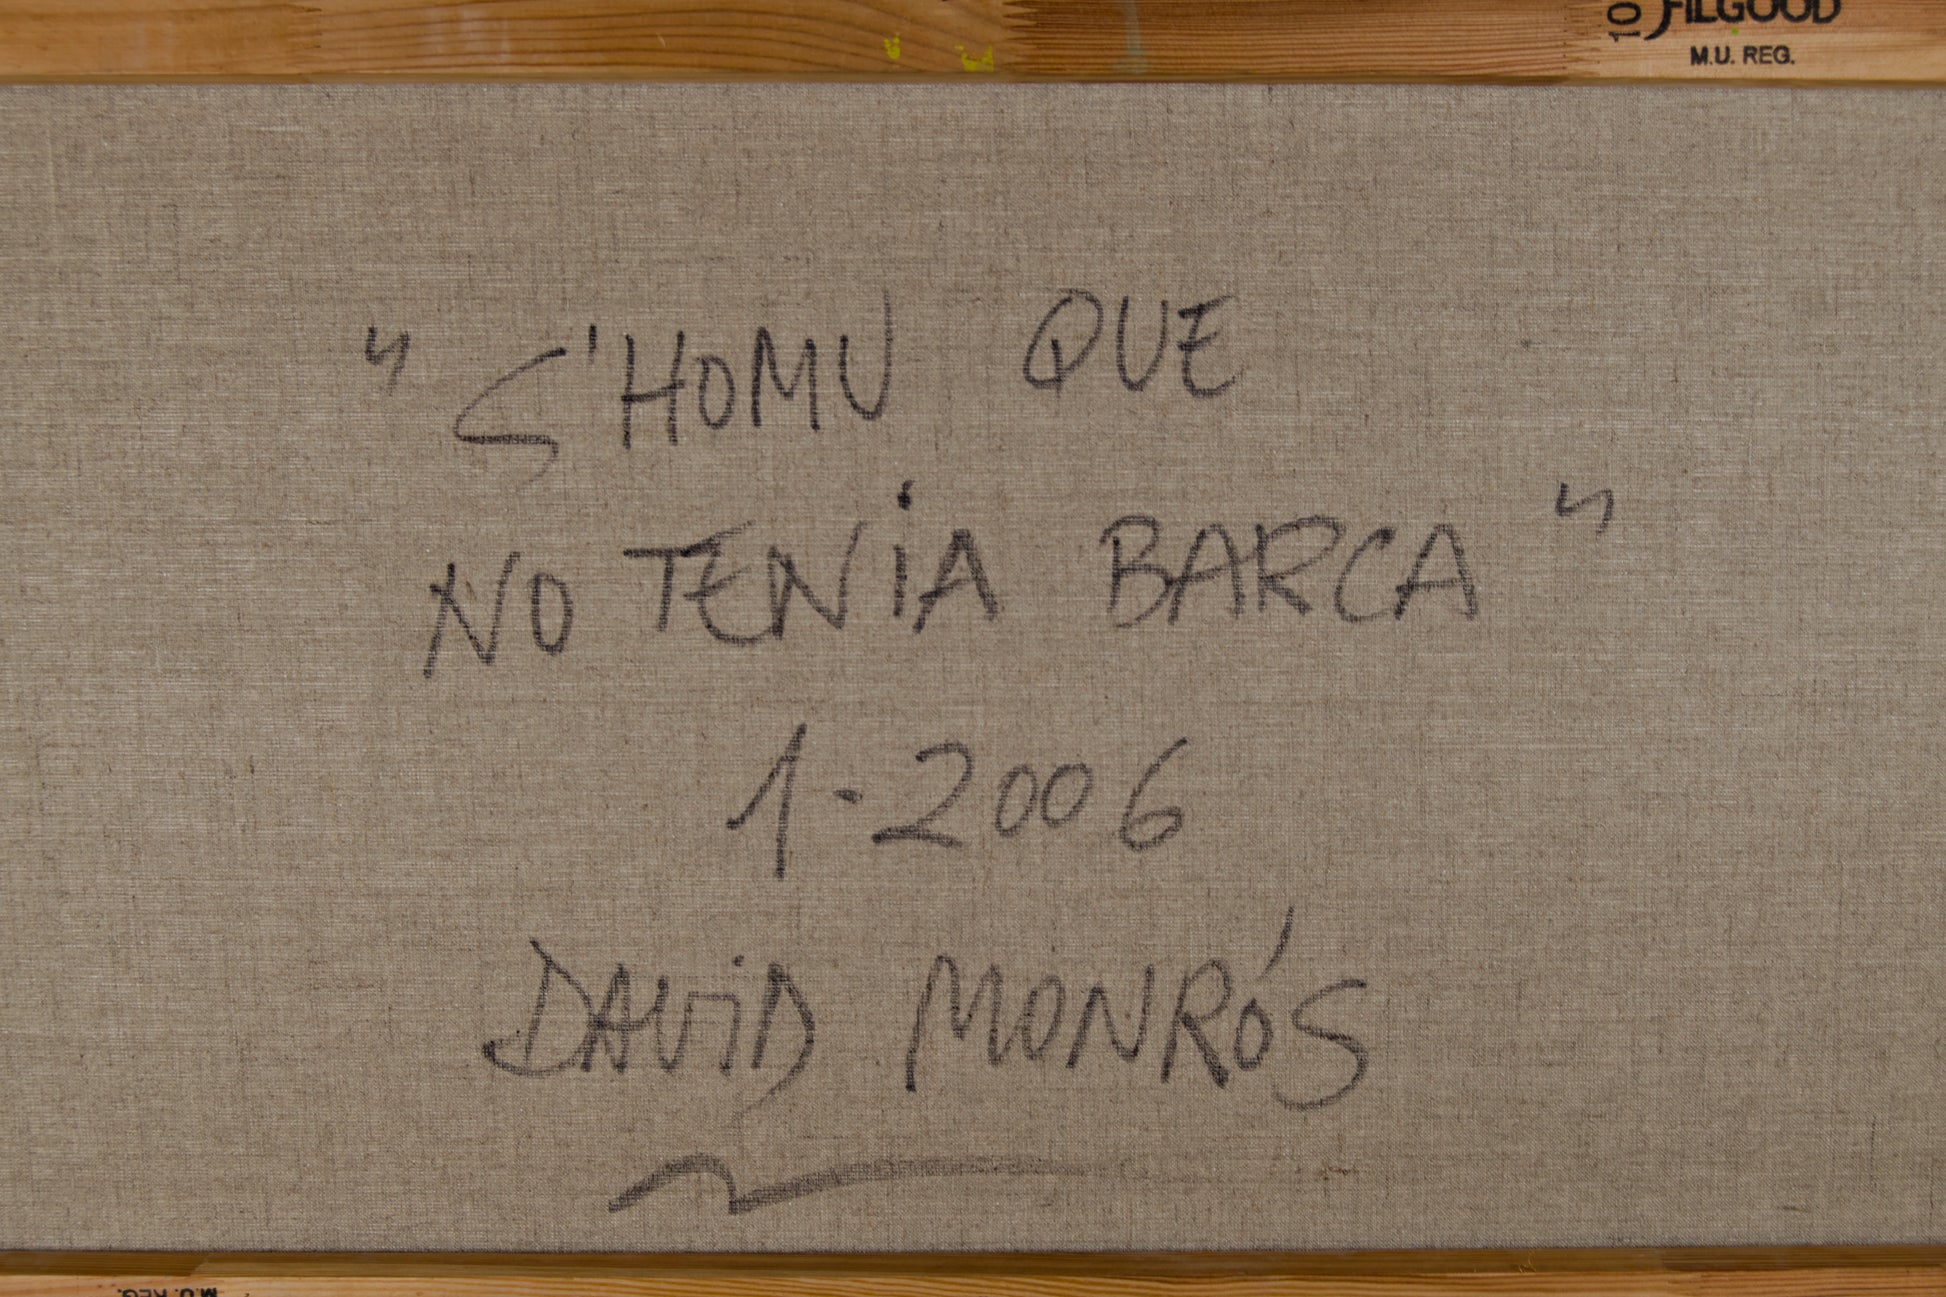 10 FILGOOD
M.U. REG.
"S'HOMU QUE
NO TENIA BARCA"
1-2006
DAVID MONRÓS
M.U. REG.